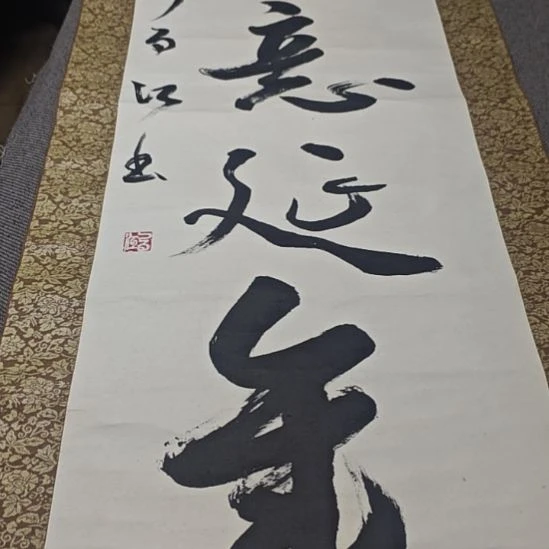 意延年
江書